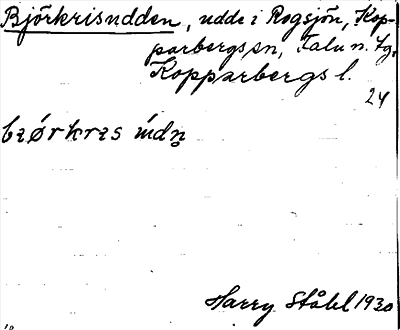 Björkrisudden, udde i Rogsjön, Kop-
parbergs sn, Falu n. tg,
Kopparbergs l.
24
Harry Ståhl 1930